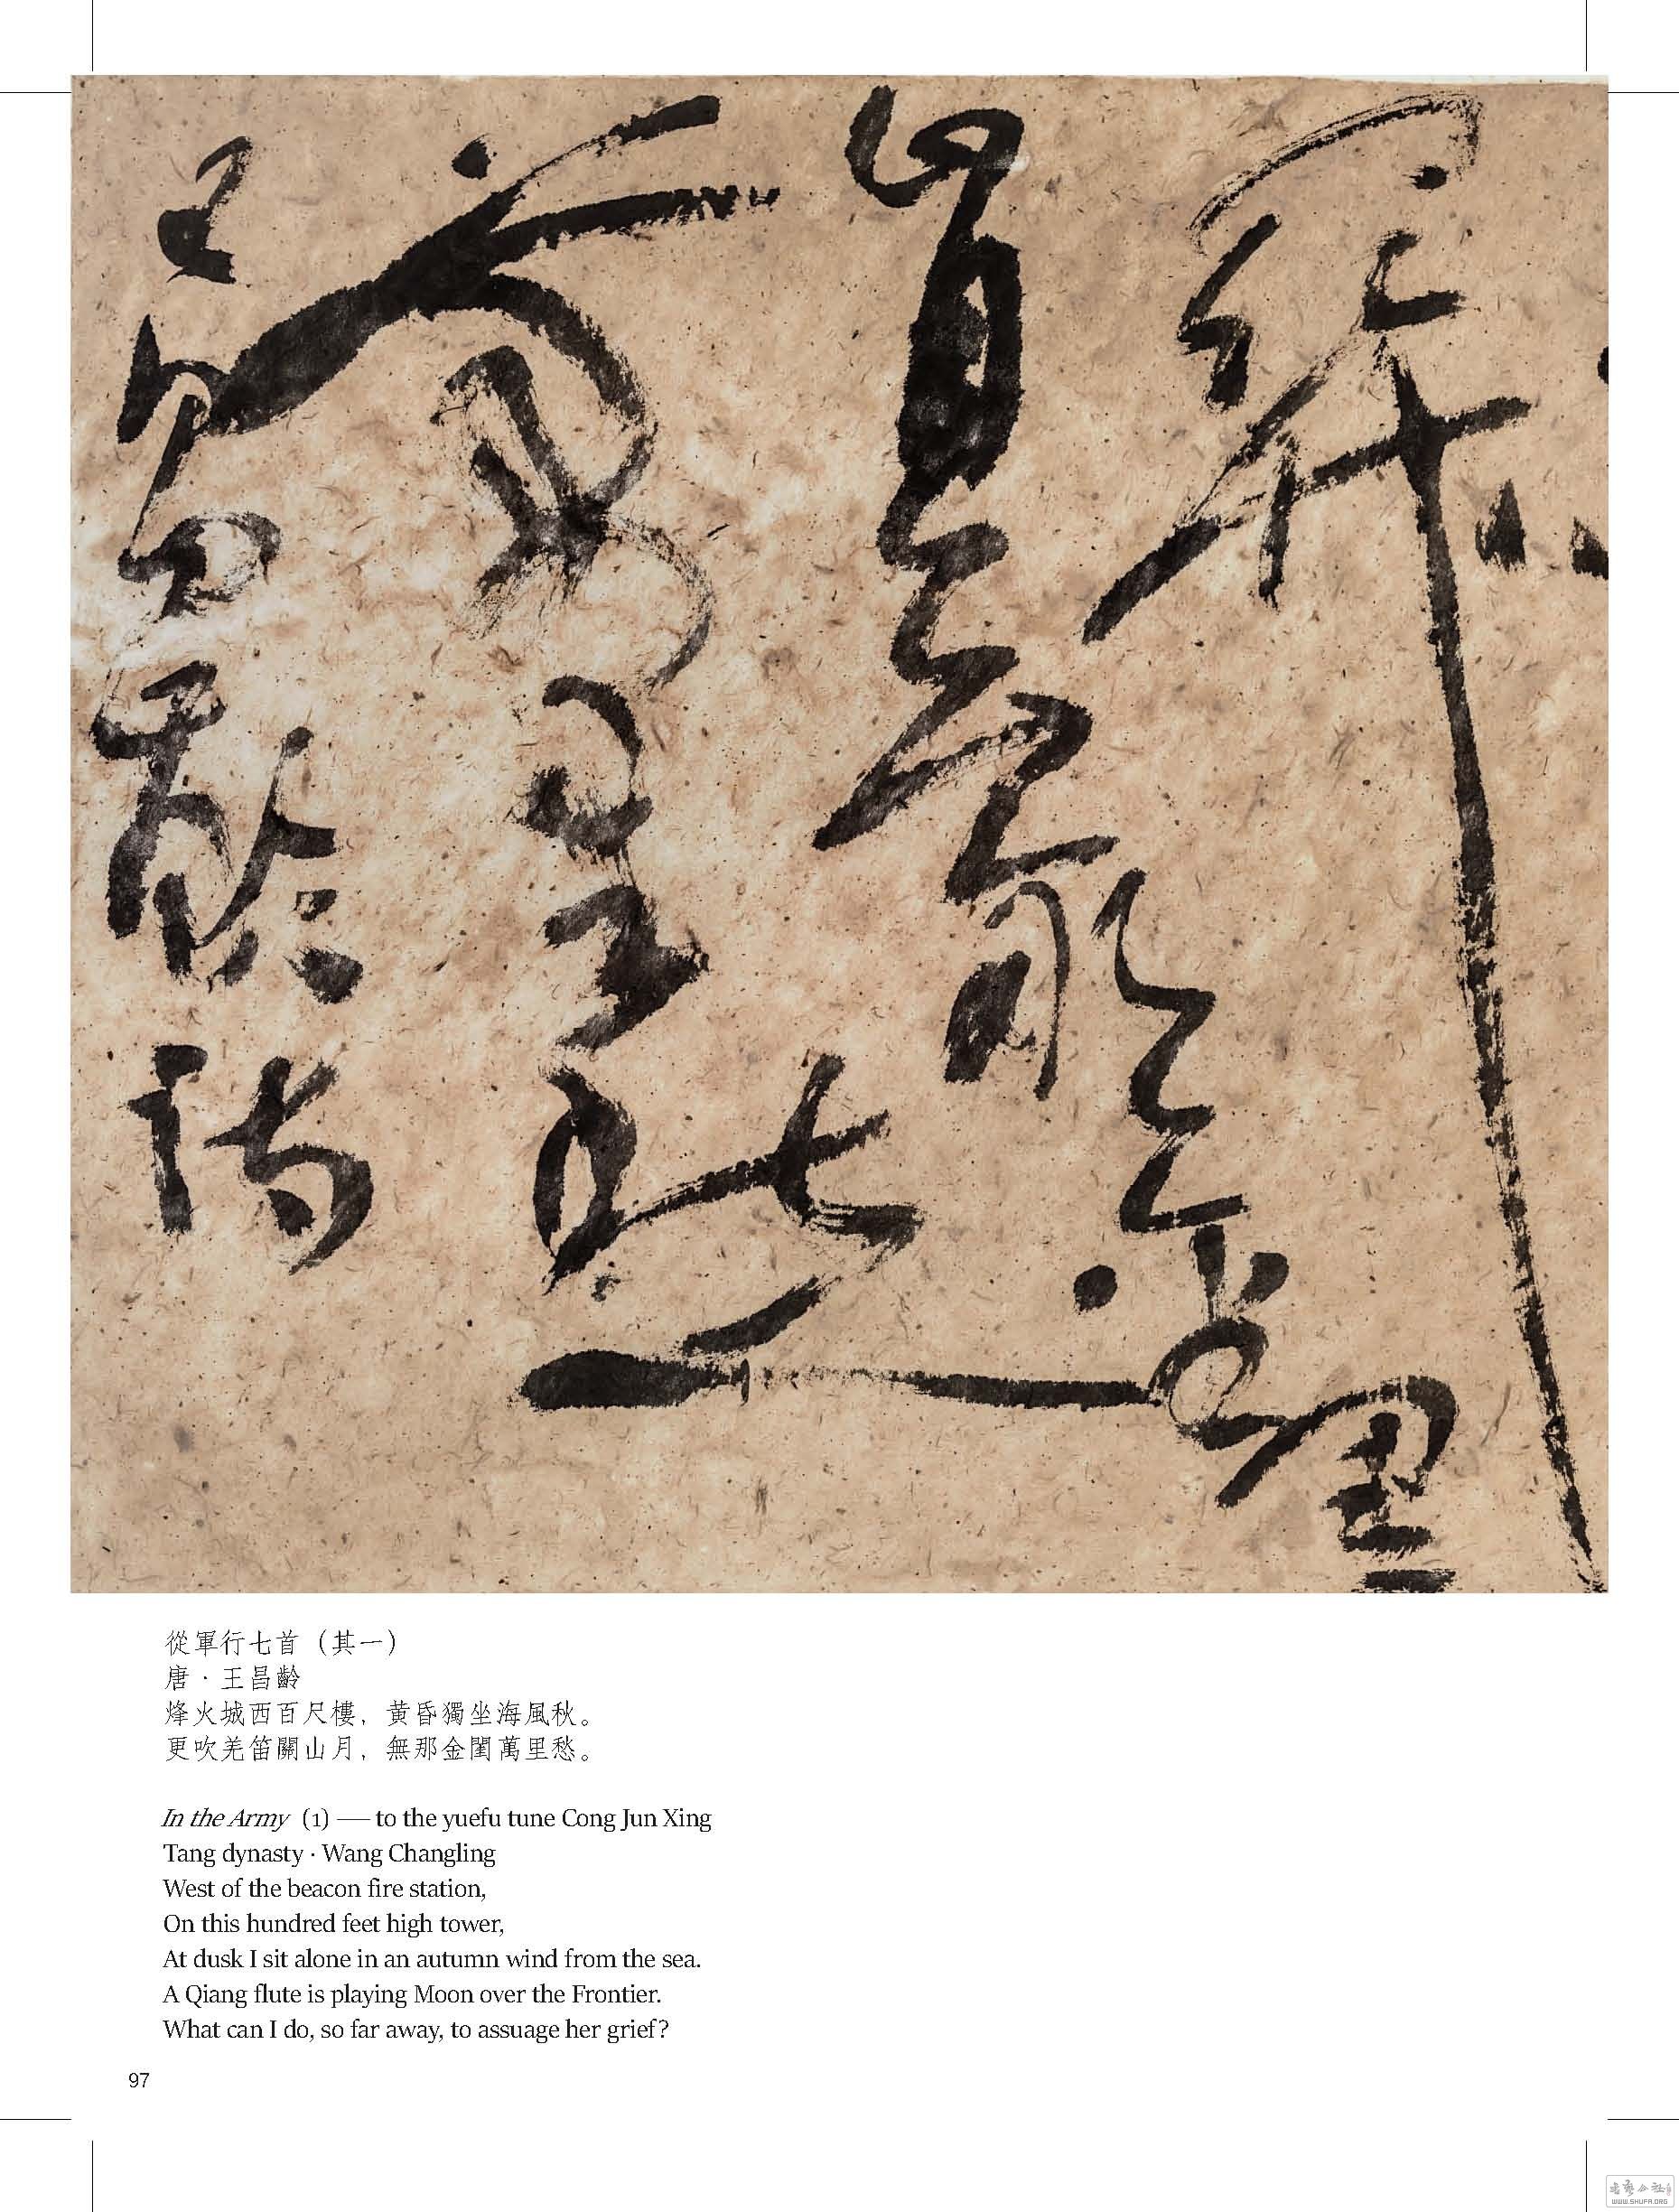 關
山月無那金閨
萬里愁
王昌齡詩
從軍行七首（其一）
唐 · 王昌齡
烽火城西百尺樓，黄昏獨坐海風秋。
更吹羌笛關山月，無那金閨萬里愁。
In the Army (1) — to the yuefu tune Cong Jun Xing
Tang dynasty · Wang Changling
West of the beacon fire station,
On this hundred feet high tower,
At dusk I sit alone in an autumn wind from the sea.
A Qiang flute is playing Moon over the Frontier.
What can I do, so far away, to assuage her grief?
97
WWW.SHUFA.ORG